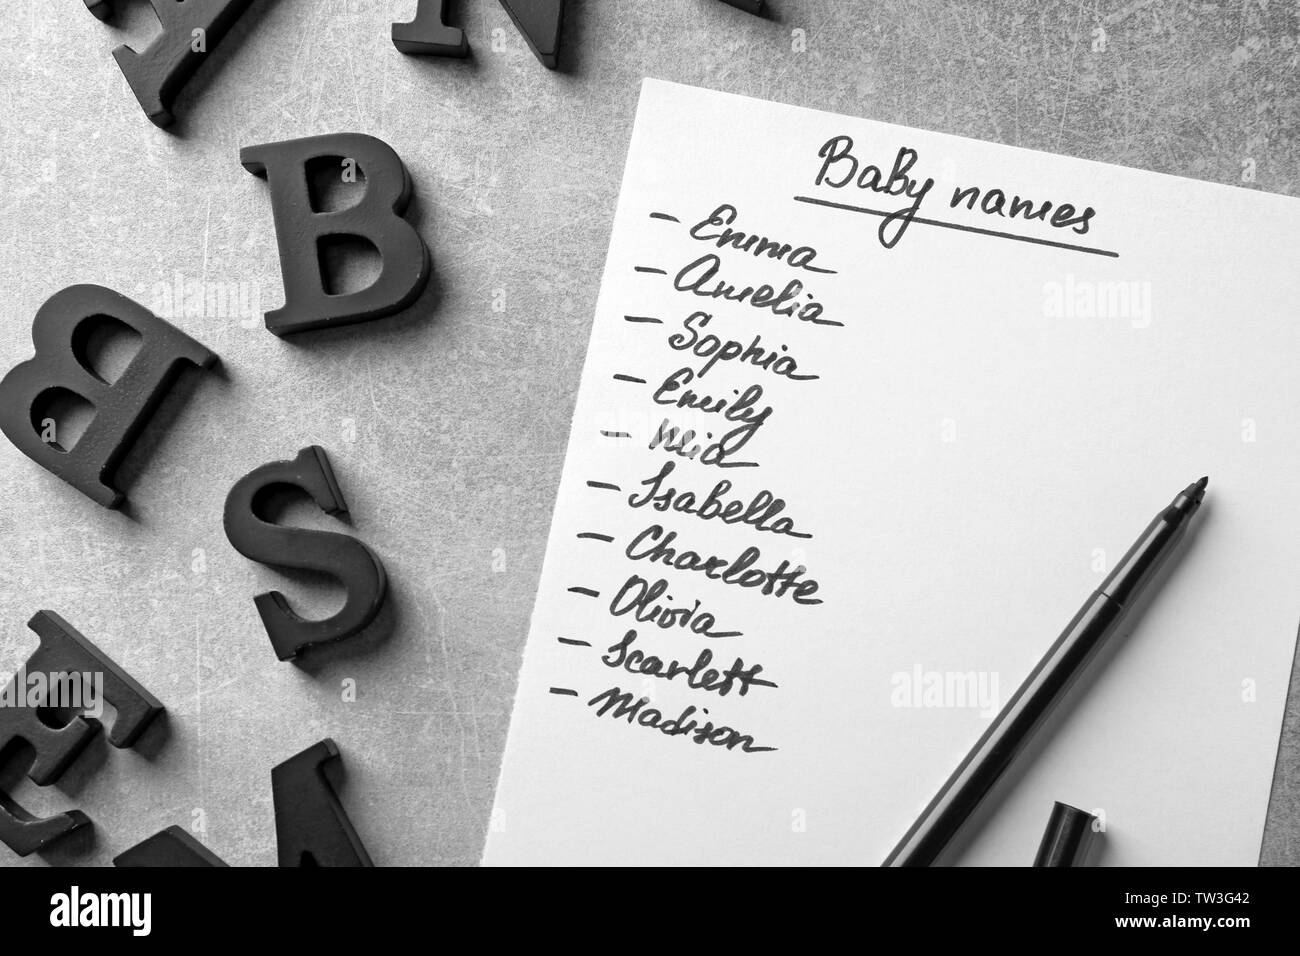 Baby names
- Emma
- Amelia
- Sophia
- Emily
- Mia
- Isabella
- Charlotte
- Olivia
- Scarlett
- Madison
B
B
S
E
alamy
alamy
alamy
Image ID: TW3G42
www.alamy.com